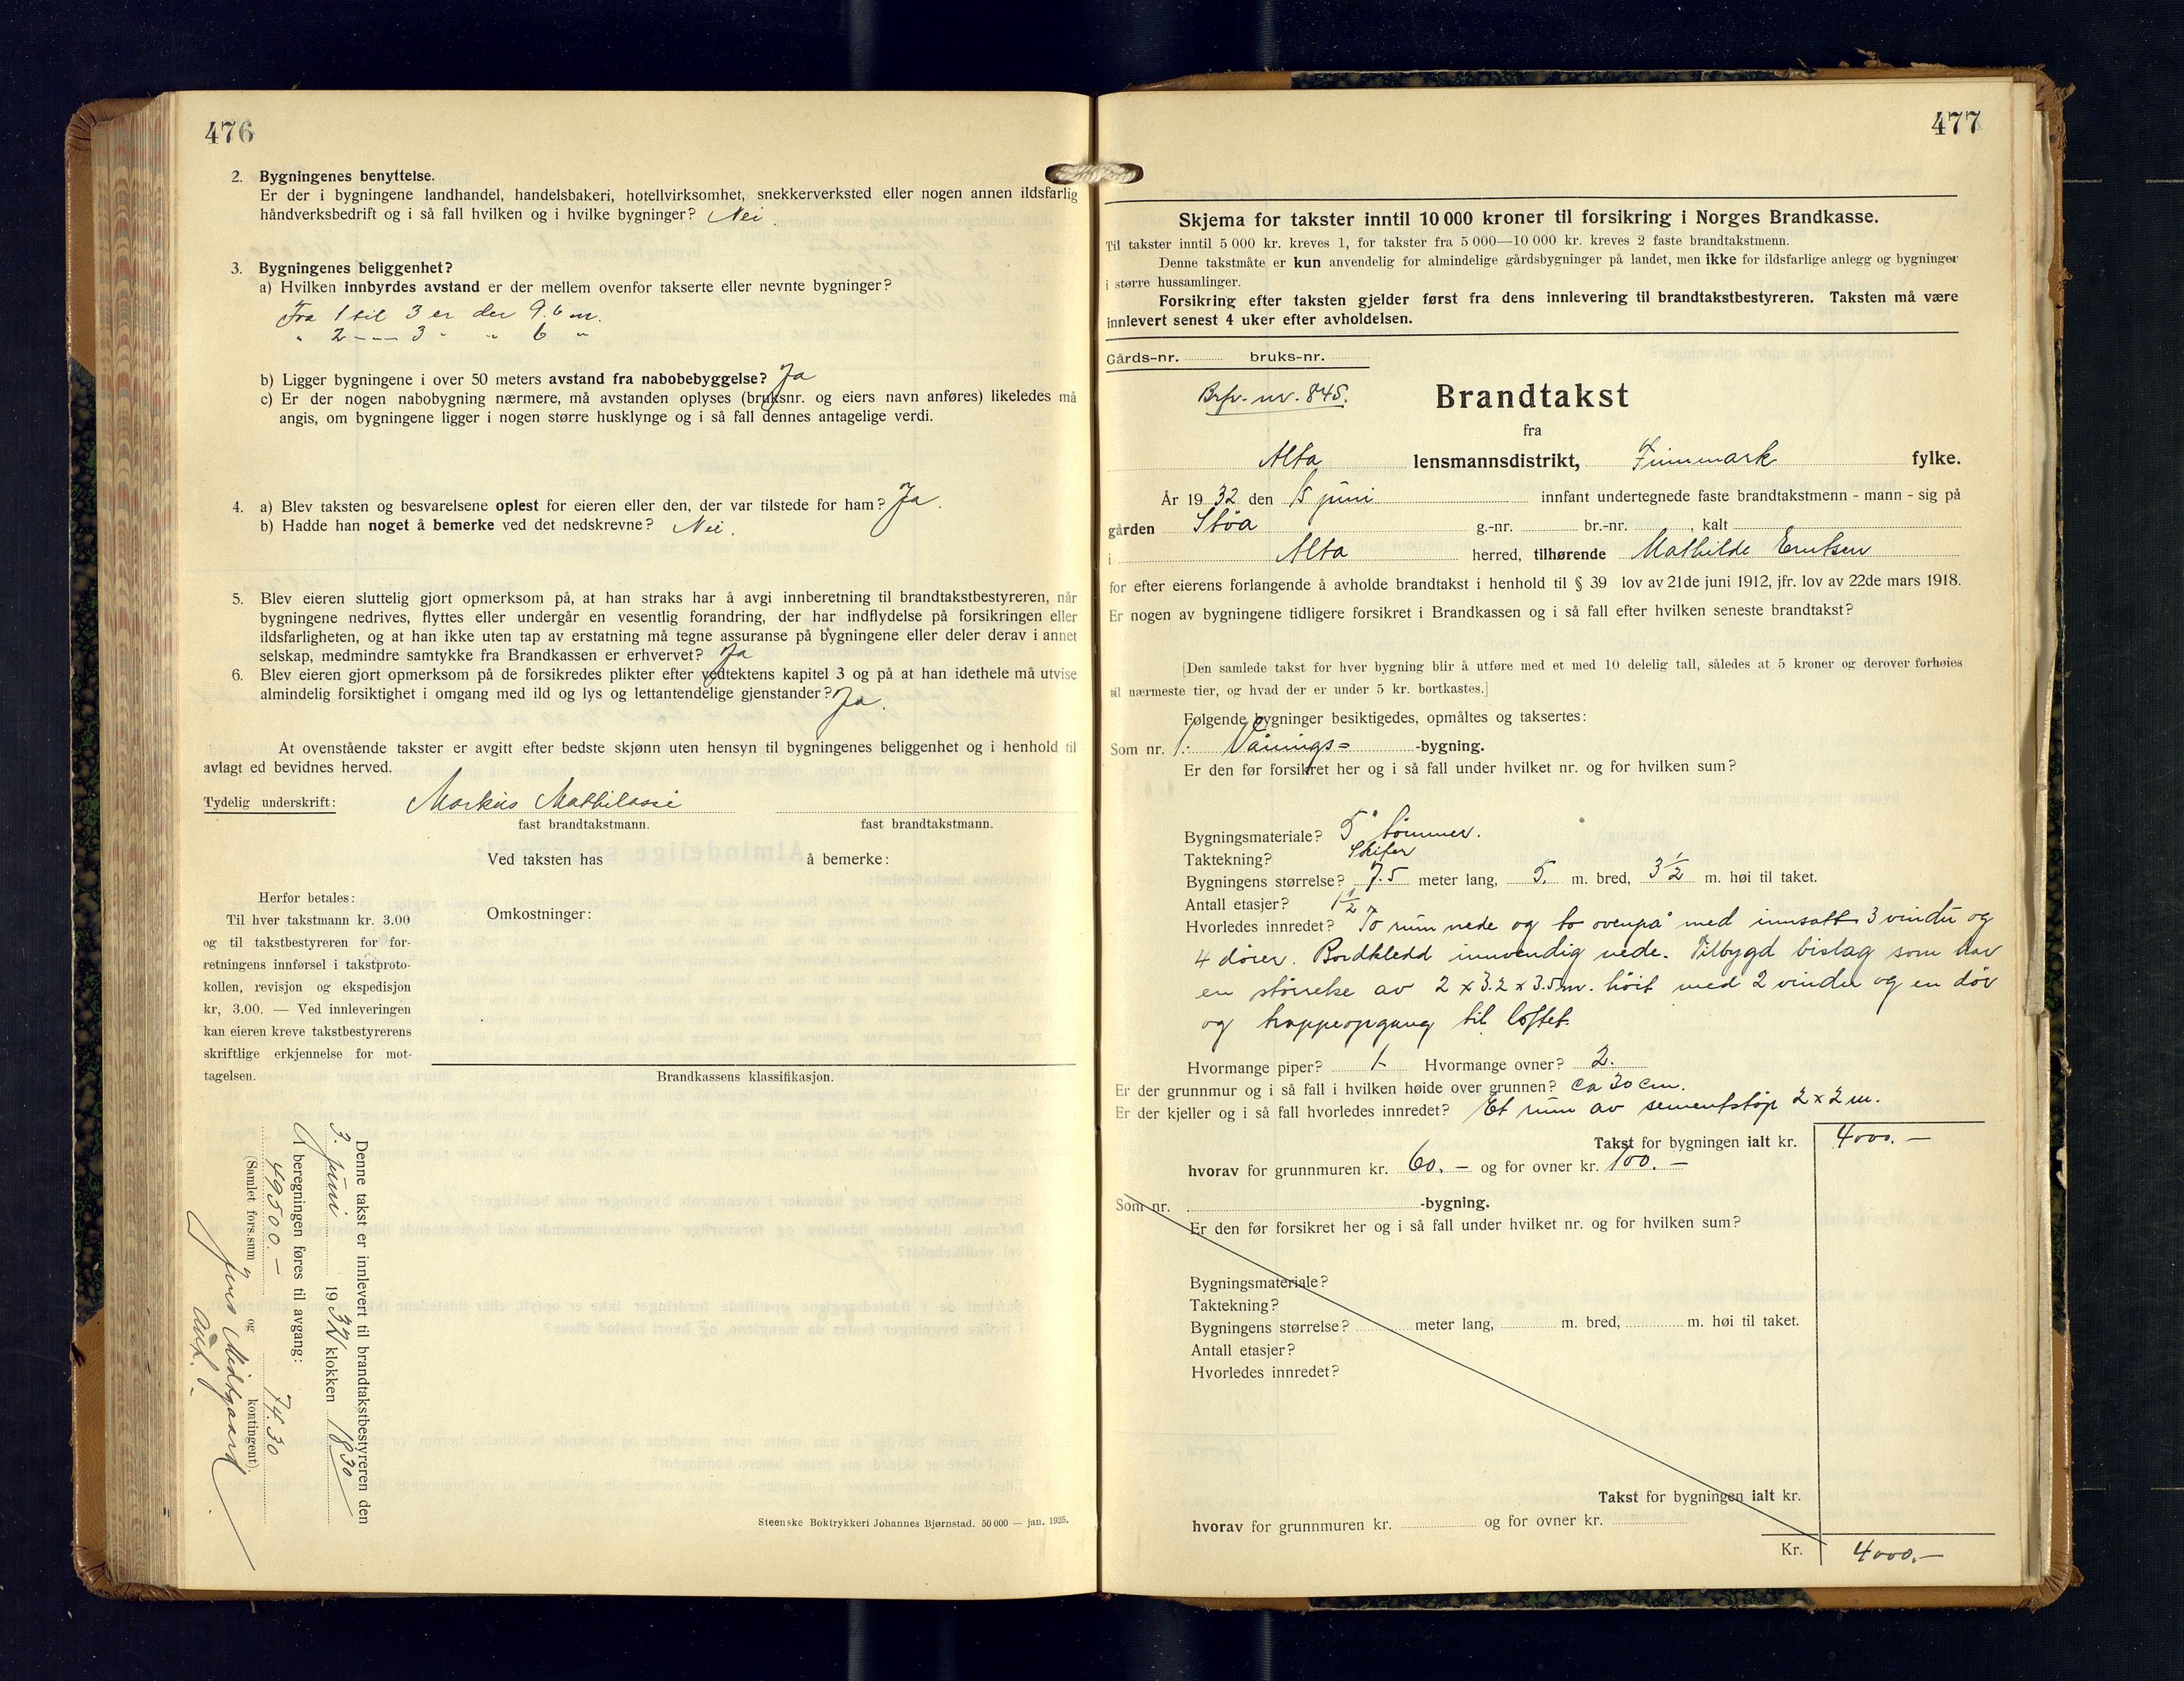 476
2. Bygningenes benyttelse.
Er der i bygningene landhandel, handelsbakeri, hotellvirksomhet, snekkerverksted eller nogen annen ildsfarlig
håndverksbedrift og i så fall hvilken og i hvilke bygninger? Nei.
3. Bygningenes beliggenhet?
a) Hvilken innbyrdes avstand er der mellem ovenfor takserte eller nevnte bygninger?
Fra 1 til 3 er der 9.6 m.
" 2 -"- 3 " " 6 "
b) Ligger bygningene i over 50 meters avstand fra nabobebyggelse? Ja
c) Er der nogen nabobygning nærmere, må avstanden oplyses (bruksnr. og eiers navn anføres) likeledes må
angis, om bygningene ligger i nogen større husklynge og i så fall dennes antagelige verdi.
4. a) Blev taksten og besvarelsene oplest for eieren eller den, der var tilstede for ham? Ja.
b) Hadde han noget å bemerke ved det nedskrevne? Nei.
5. Blev eieren sluttelig gjort opmerksom på, at han straks har å avgi innberetning til brandtakstbestyreren, når
bygningene nedrives, flyttes eller undergår en vesentlig forandring, der har indflydelse på forsikringen eller
ildsfarligheten, og at han ikke uten tap av erstatning må tegne assuranse på bygningene eller deler derav i annet
selskap, medmindre samtykke fra Brandkassen er erhvervet? Ja
6. Blev eieren gjort opmerksom på de forsikredes plikter efter vedtektens kapitel 3 og på at han idethele må utvise
almindelig forsiktighet i omgang med ild og lys og lettantendelige gjenstander? Ja.
At ovenstående takster er avgitt efter bedste skjønn uten hensyn til bygningenes beliggenhet og i henhold til
avlagt ed bevidnes herved.
Tydelig underskrift: Markus Mathilassi
fast brandtakstmann. fast brandtakstmann.
Ved taksten has å bemerke:
Herfor betales:
Til hver takstmann kr. 3.00
og til takstbestyreren for for-
retningens innførsel i takstproto-
kollen, revisjon og ekspedisjon
kr, 3.00. — Ved innleveringen
kan eieren kreve takstbestyrerens
skriftlige erkjennelse for mot-
tagelsen.
Omkostninger:
Brandkassens klassifikasjon.
Denne takst er innlevert til brandtakstbestyreren den
3. juni 1932 klokken 18 30
I beregningen føres til avgang:
49500.— og 74.30
(Samlet fors.sum kontingent).
Jens Midtgaard
Steenske Boktrykkeri Johannes Bjørnstad. 50 000 — jan. 1925.
477
Skjema for takster inntil 10 000 kroner til forsikring i Norges Brandkasse.
Til takster inntil 5 000 kr. kreves 1, for takster fra 5 000—10 000 kr. kreves 2 faste brandtakstmenn.
Denne takstmåte er kun anvendelig for almindelige gårdsbygninger på landet, men ikke for ildsfarlige anlegg og bygninger
i større hussamlinger.
Forsikring efter taksten gjelder først fra dens innlevering til brandtakstbestyreren. Taksten må være
innlevert senest 4 uker efter avholdelsen.
Gårds-nr. bruks-nr.
Brfr.- nr. 845.
Brandtakst
fra
Alta lensmannsdistrikt, Finnmark fylke.
År 1932 den 15 juni innfant undertegnede faste brandtakstmenn - mann - sig på
gården Støa g.-nr. br.-nr. , kalt
i Alta herred, tilhørende Mathilde
for efter eierens forlangende å avholde brandtakst i henhold til § 39 lov av 21de juni 1912, jfr. lov av 22de mars 1918.
Er nogen av bygningene tidligere forsikret i Brandkassen og i så fall efter hvilken seneste brandtakst?
[Den samlede takst for hver bygning blir å utføre med et med 10 delelig tall, således at 5 kroner og derover forhøies
til nærmeste tier, og hvad der er under 5 kr. bortkastes.]
Følgende bygninger besiktigedes, opmåltes og taksertes:
Som nr. 1. Vånings= -bygning.
Er den før forsikret her og i så fall under hvilket nr. og for hvilken sum?
Bygningsmateriale? 5" tømmer.
Taktekning? Skifer
Bygningens størrelse? 7.5 meter lang, 5. m. bred, 3 1/2 m. høi til taket.
Antall etasjer? 1 1/2
Hvorledes innredet? To rum nede og to ovenpå med innsatt 3 vindu og
4 dører. Bordkledd innvendig nede. Tilbygd bislag som har
en størrelse av 2 x 3.2 x 3.5 m. høit med 2 vindu og en dør
og trappeopgang til loftet.
Hvormange piper? 1. Hvormange ovner? 2.
Er der grunnmur og i så fall i hvilken høide over grunnen? ca 30 cm.
Er der kjeller og i så fall hvorledes innredet? Et rum av sementstøp 2 x 2 m.
Takst for bygningen ialt kr. 4000.—
hvorav for grunnmuren kr. 60.— og for ovner kr. 100.—
Som nr. -bygning.
Er den før forsikret her og i så fall under hvilket nr. og for hvilken sum?
Bygningsmateriale?
Taktekning?
Bygningens størrelse? meter lang, m. bred, m. høi til taket.
Antall etasjer?
Hvorledes innredet?
Takst for bygningen ialt kr.
hvorav for grunnmuren kr. og for ovner kr.
Kr. 4000.—